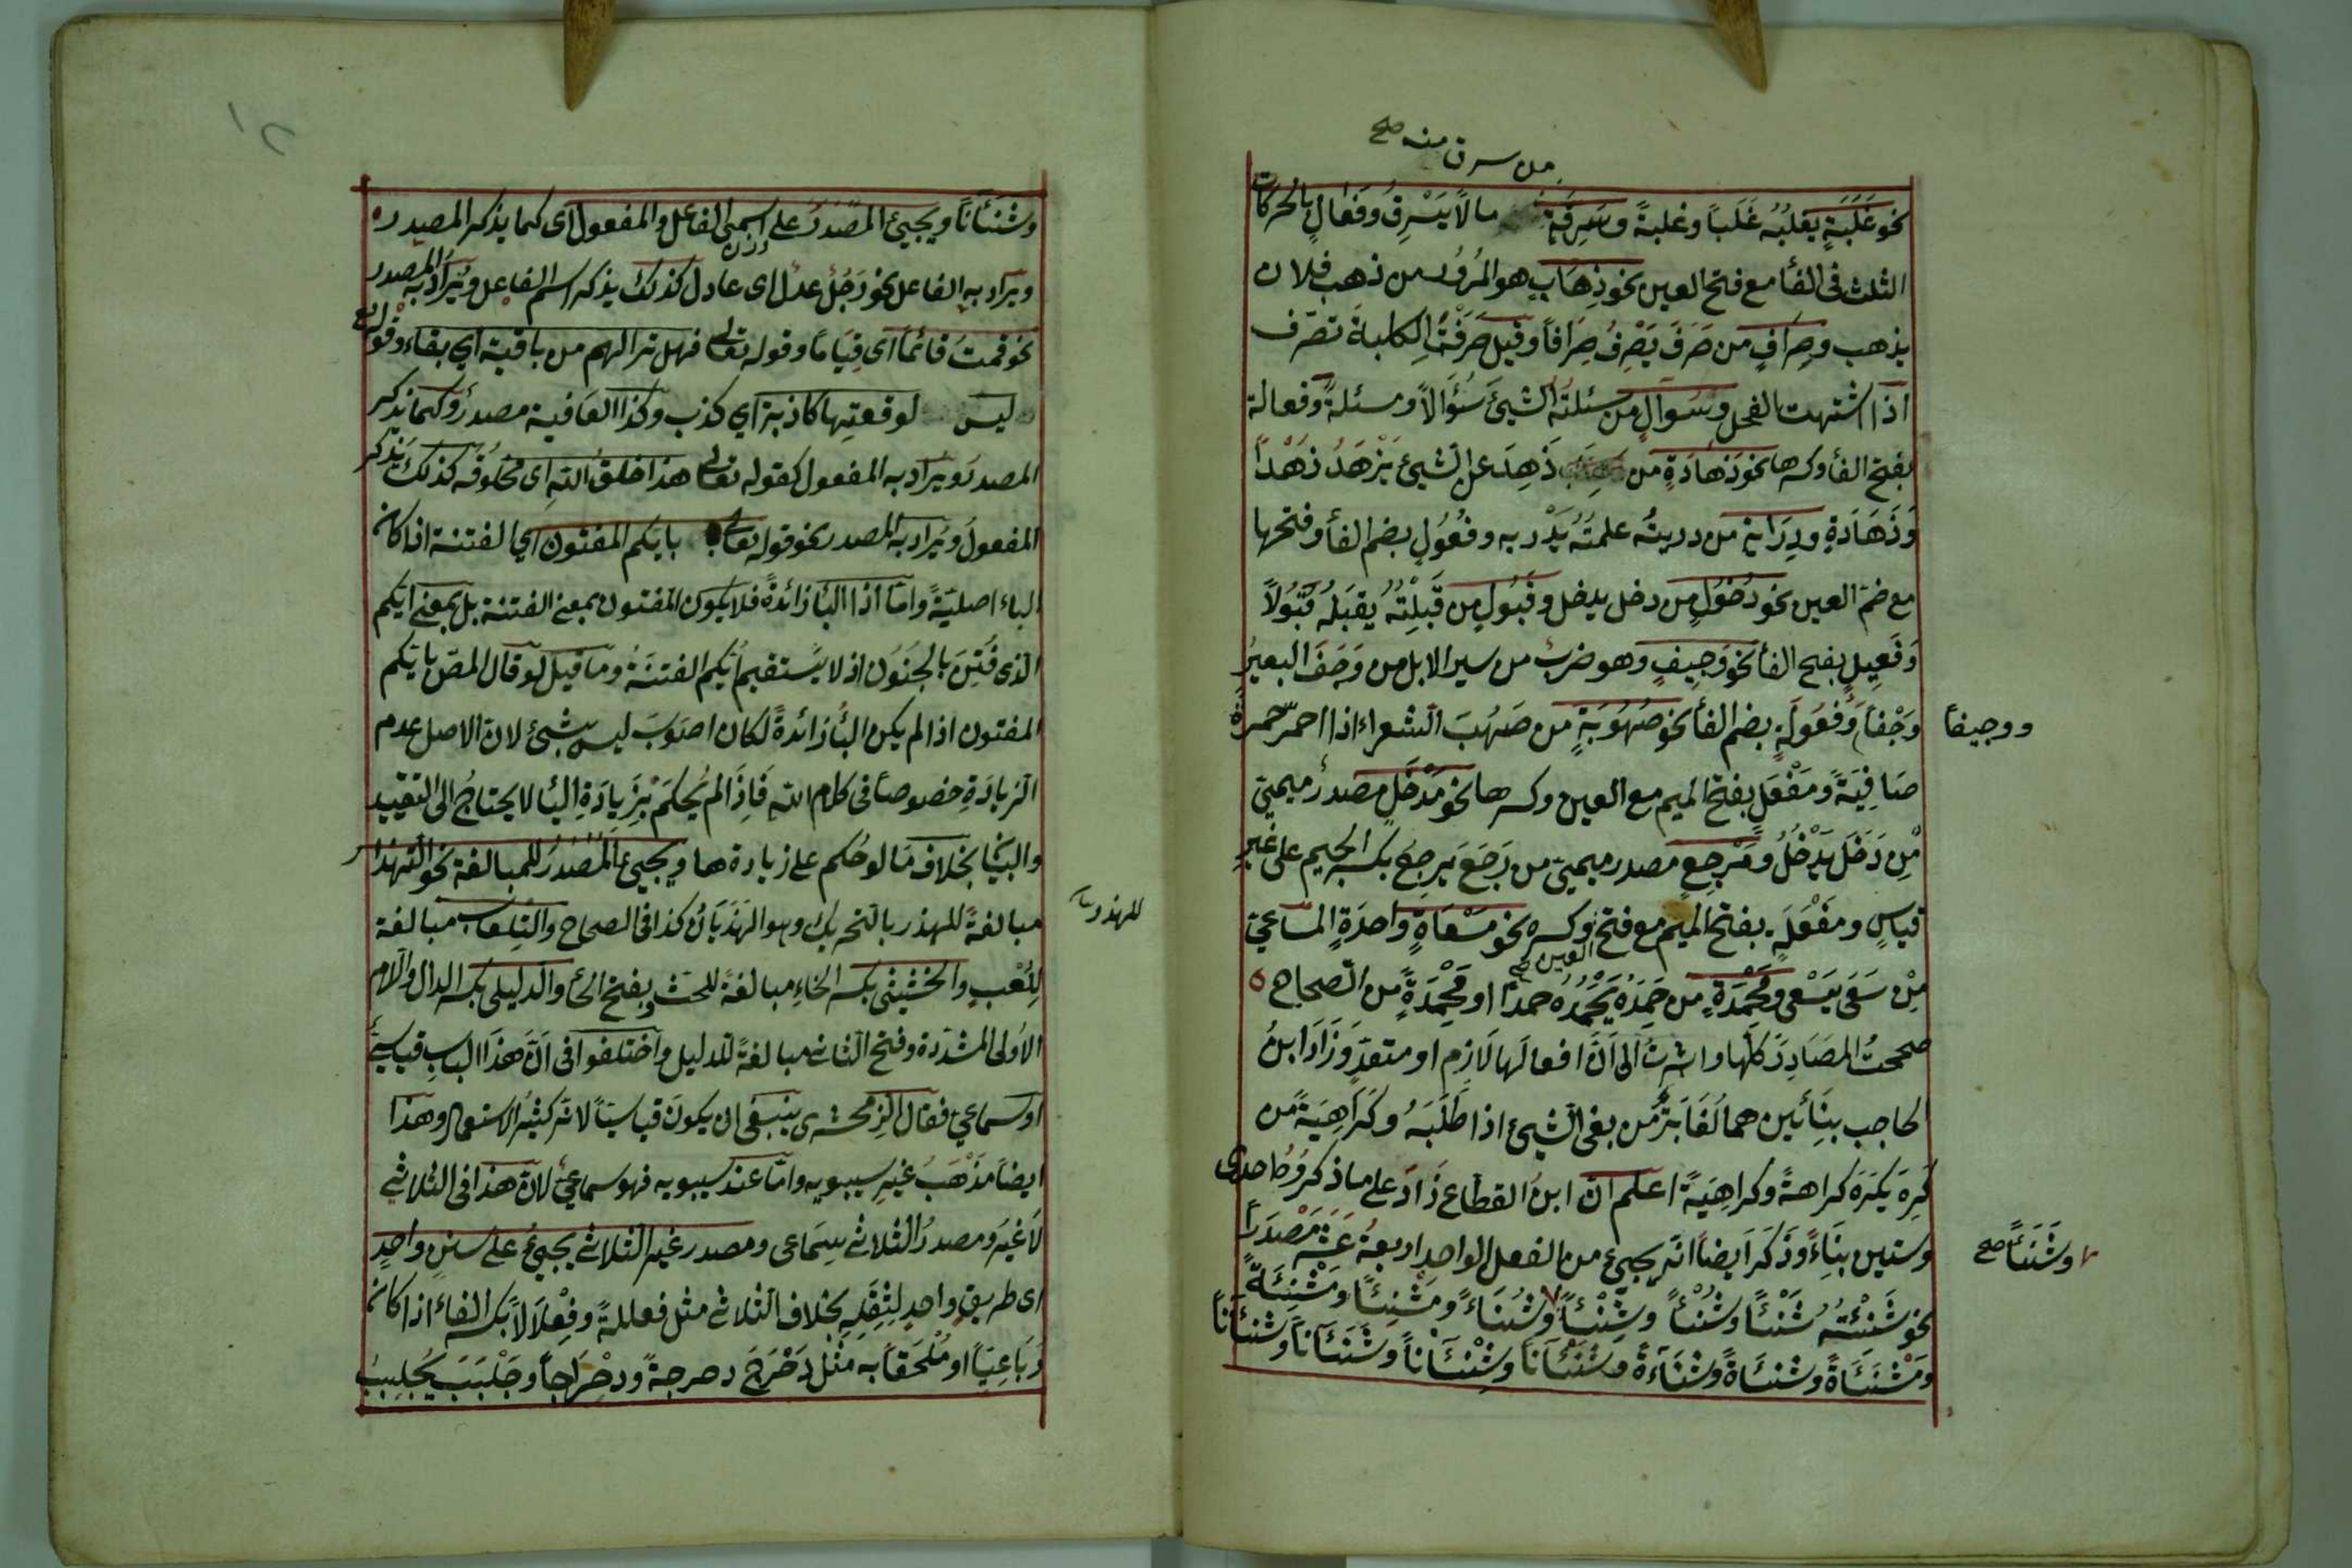 من سرق منه صح
نحو غَلَبَةٍ يغلبُهُ غَلَباً وغلبةً وسَرِقَةٍ مالاً يَسْرِقُ وفَعَالٍ بالحركات
الثلث فى الفأ مع فتح العين نحو ذِهَابٍ هو المُرُورُ من ذهب فلان
يذهب وصِرَافٍ من صَرَفَ يَصْرِفُ صِرَافاً وقيل صَرَفَتْ الكلبة تصرّف
اذا اشتهت الفحل وسُوآلٍ من سئلتُه الشيئَ سُؤَالاً ومسئلةً وفعالة
بفتح الفأ وكسرها نحو زَهَادَةٍ من زَهِدَ عن الشيئ يَزْهَدُ زهْداً
وَزَهَادَةٍ ودِرَايةٍ من دريتُه علمتُهُ يَدْريه وفُعُولٍ بضم الفأ وفتحها
مع ضم العين نحو دُخُولٍ من دخل يدخل وقَبُولٍ من قَبِلْتُهُ يقبَلُه قَبُولاً
وَفَعِيلٍ بفتح الفأ نحو وَجِيفٍ وهو ضربٌ من سير الابل من وَجَفَ البعيرُ
وَجْفاً وَفُعُولَةٍ بضم الفأ نحو صُهُوبَةٍ من صَهُبَ الشعر اذا احمرّ حمرةً
ووجيفاً
صَافِيَةً ومَفْعَلٍ بفتح الميم مع العين وكسرها نحو مَدْخَلٍ مصدرٌ ميميّ
مْن دَخَلَ يَدْخُلُ ومَرْجِعٍ مصدر ميميّ من رَجَعَ يرجِعُ بكسر الجيم على غير
قياسٍ ومَفْعَلَةٍ بفتح الميم مع فتح العين وكسره نحو مَسْعَاةٍ واحدَةِ المساعيّ
مْن سَعَى يَسْعى ومَحْمِدَةٍ من حَمِدَهُ يَحْمَدُهُ حمداً او مَحْمِدَةً من الصحاح
صححتُ المصَادِرَ كلّها واشرتُ الى اَنَّ افعالَها لَازِم او متعدٍّ وزَادَ ابنُ
الحاجب بِنَائَين هما بُغَايَةٌ من بغى الشيئ اذا طَلَبَهُ وكَرَاهِيَةً من
كَرِهَ يَكْرَهُ كراهةً وكراهِيَةً اعلم انّ ابنُ القطّاع زَادَ على ما ذكر وُحاحدى
وستين بِنَاءً وذَكَرَ ايضاً انّه يجيئ من الفعل الواحد اربعةَ عَشَرَ مَصْدَراً
وشَنَئاً صح
نحو شَنِئْتُهُ شَنْئاً وشُنْئاً وشِنْئاً وشُنَاءً ومَشْنِئاً ومَشْنِئَةً
ومَشْنَئَةً وشَنْئَةً وشَنَاءَةً وشَنْئَاناً وشِنْئَاناً وشَنَئَاناً وشنئَاناً
١٢
وشَنَئَاناً ويجيئ المصدَرُ على وزن اسمى الفاعل والمفعول اى كما يذكر المصدر
ويراد به الفاعل نحو رَجُلٌ عدل اى عادل كذلك يذكر اسم الفاعل ويُرَادُ به المصدر
نحو قمتُ قائماً اى قِيَاماً وقوله تعالى فهل ترا لهم من باقية اي بقاء وقوله تع
ليس لوقعتِها كاذبة اي كذب وكذا العافية مصدرٌ وكما يذكر
المصدرُ ويُرَاد به المفعول كقوله تعالى هذا خلقُ الله اى مخلوقُه كذلك يَذْكر
المفعولُ ويُراد به المصدر نحو قوله تعالى بايّكم المفتون اي الفتنة اذا كان
الباء اصليّةً وامّا اذا البأ زائدةً فلا يكون المفتون بمعنى الفتنة بل بمعنى ايّكم
الّذى فُتِنَ بالجُنُون اذ لا يستقيم ايّكم الفتنَةُ وما قيل لو قال المصّ بايّكم
المفتون اذا لم يكن البأُ زائدةً لكان اصوَبَ ليس بشيئ لانّ الاصل عدم
الزيادَةِ خصوصاً فى كلام الله فَاِذَا لم يُحكَم بزيَادَةِ البأ لا يحتاجُ الى التقييد
والبيَان بخلاف مَا لو حُكم على زيادة ها ويجيئ المصدَرُ للمبالغة نحو التَهْذَار
مبالغةً للهذر بالتحريك وهو الهَذَيَانُ كذا فى الصحاح والتِلعاب مبالغة
للهذر
لِلُّعْبِ والحِثّيثى بكسر الحاءِ مبالغةً للحث وبفتح الحأ والدِلّيلى بكسر الدال واللام
الاُولى المشدّدة وفتح الثانى مبالغةً للدليل واختلفوا فى انّ هذا الباب قياسيّ
اوسماعيّ فقال الزمخشرى ينبغى ان يكونَ قياسيّاً لانّه كثيرُ الاستعمال وهذا
ايضاً مَذْهَبُ غيرِ سيبويه وامّا عند سيبويه فهو سماعيّ لانّ هذا فى الثلاثي
لَا غَيْرَ ومصدرُ الثلاثي سِمَاعى ومصدر غير الثلاثي يجيئ على سننٍ واحدٍ
اى طريقٍ واحدٍ لِثِقَلِهِ بخلاف الثلاثي مثل فعللةً وفِعْلَالاً بكسر الفاء اذا كان
رُبَاعِيّاً او مُلْحَقاً به مثل دَحْرَجَ دحرجةً ودِحْرَاجاً وجَلْبَبَ يُجَلبِبُ